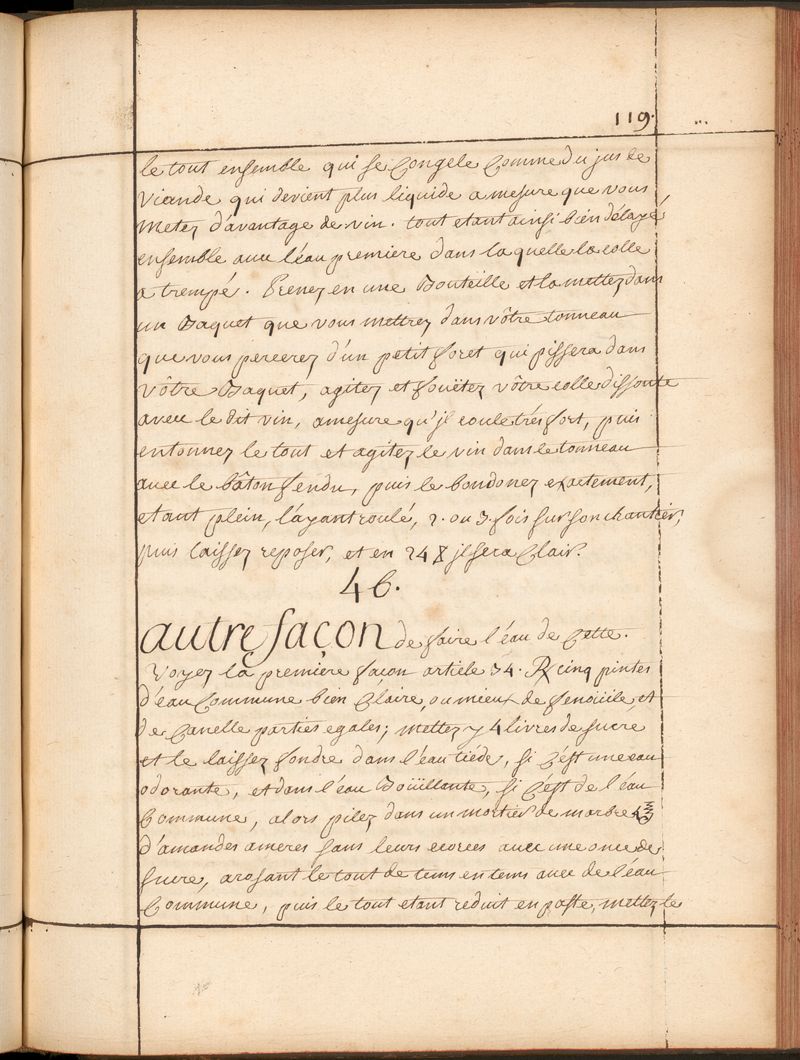 119.
le tout ensemble qui se Congele Comme du jus de
Viande qui devient plus liquide a mesure que vous
Metez d'avantage de vin. tout etant ainsi bien délayé
ensemble avec l'éau premiere dans laquelle la colle
a trempé. Prenez en une Bouteille et la mettez dans
un Baquet que vous mettrez dans vôtre tonneau
que vous percerez d'un petit foret qui pissera dans
vôtre Baquet, agitez et fouëtez vôtre colle dissoute
avec le dit vin, amesure qu'jl coule trés fort, puis
entonnez le tout et agitez le vin dans le tonneau
avec le bâton fendu, puis le bondonez exactement,
etant plein, l'ayant roulé, 2. ou 3. fois sur son chantier,
puis laissez reposer, et en 24 jl sera Clair.
46.
autre façon de faire l'éau de Cette.
Voyez la premiere facon article 34. ℞ cinq pintes
d'eau Commune bien Claire, ou mieux de fenoüile et
de Canelle parties egales; mettez y 4 livres de sucre
et le laissez fondre dans l'éau tiéde, si c'ést une eau
odorante, et dans l'éau Boüillante, si c'ést de l'éau
Commune, alors pilez dans un mortier de marbre 4 ℥
d'amandes ameres sans leurs ecorces avec une once de
sucre, arosant le tout de tems en tems avec de l'éau
Commune, puis le tout etant reduit en paste, mettez le